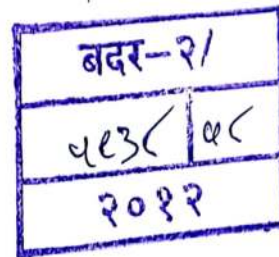 बदर-२/
५९३८ ५८
२०१२